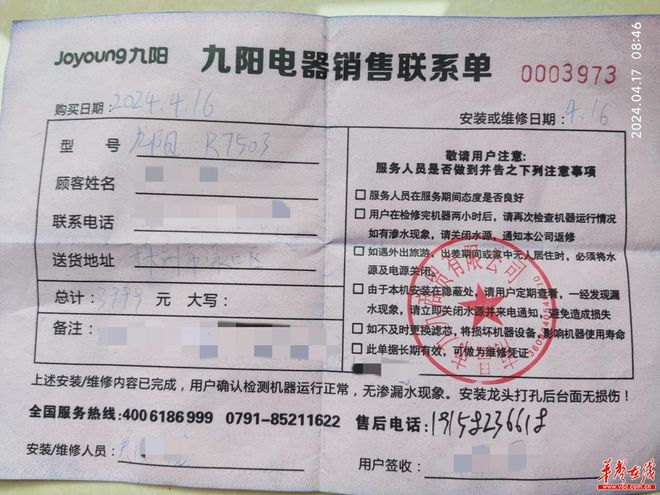 Joyoung九阳 九阳电器销售联系单 0003973
购买日期：2024.4.16 安装或维修日期：4.16
型 号 九阳 R7503
顾客姓名
联系电话
送货地址
总计：3999 元 大写：
备注：
敬请用户注意：
服务人员是否做到并告之下列注意事项
服务人员在服务期间态度是否良好
用户在检修完机器两小时后，请再次检查机器运行情况
如有渗水现象，请关闭水源，通知本公司返修
如遇外出旅游，出差期间或家中无人居住时，必须将水
源及电源关闭。
由于本机安装在隐蔽处，请用户定期查看，一经发现漏
水现象，请立即关闭水源并来电通知，避免造成损失
如不及时更换滤芯，将损坏机器设备，影响机器使用寿命
此单据长期有效，可做为维修凭证
商贸有限公司
上述安装/维修内容已完成，用户确认检测机器运行正常，无渗漏水现象。安装龙头打孔后台面无损伤！
全国服务热线：4006186999 0791-85211622 售后电话：19158236618
安装/维修人员： 用户签收：
2024.04.17 08:46
华声在线
www.voc.com.cn